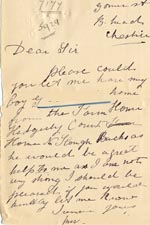 7177
5979
Gower St
B. Head
Cheshire
Dear Sir
Please could
you let me have my
boy home
from the Farm Home
Court
Home Slough Bucks as
he would be a great
help to me as I am not
very strong I should be
if you would
kindly let me know
yours
Mrs.